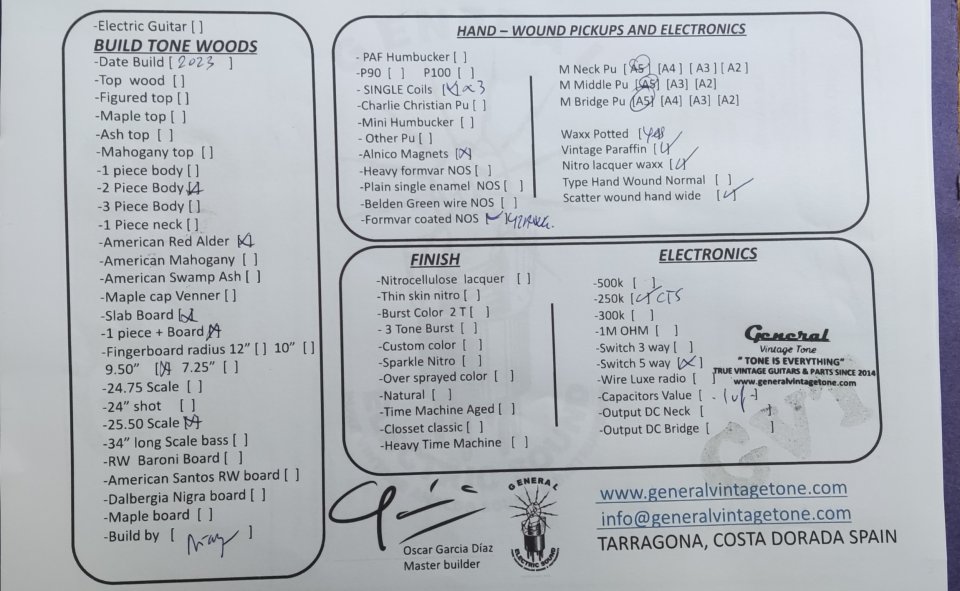 -Electric Guitar [ ]
BUILD TONE WOODS
-Date Build [ 2023 ]
-Top wood [ ]
-Figured top [ ]
-Maple top [ ]
-Ash top [ ]
-Mahogany top [ ]
-1 piece body [ ]
-2 Piece Body [x]
-3 Piece Body [ ]
-1 Piece neck [ ]
-American Red Alder [x]
-American Mahogany [ ]
-American Swamp Ash [ ]
-Maple cap Venner [ ]
-Slab Board [x]
-1 piece + Board [x]
-Fingerboard radius 12” [ ] 10” [ ]
9.50” [x] 7.25” [ ]
-24.75 Scale [ ]
-24” shot [ ]
-25.50 Scale [x]
-34” long Scale bass [ ]
-RW Baroni Board [ ]
-American Santos RW board [ ]
-Dalbergia Nigra board [ ]
-Maple board [ ]
-Build by [ ]
HAND – WOUND PICKUPS AND ELECTRONICS
- PAF Humbucker [ ]
-P90 [ ] P100 [ ]
- SINGLE Coils [x] x3
-Charlie Christian Pu [ ]
-Mini Humbucker [ ]
- Other Pu [ ]
-Alnico Magnets [x]
-Heavy formvar NOS [ ]
-Plain single enamel NOS [ ]
-Belden Green wire NOS [ ]
-Formvar coated NOS
M Neck Pu [A5] [A4] [A3] [A2]
M Middle Pu [A5] [A3] [A2]
M Bridge Pu [A5] [A4] [A3] [A2]
Waxx Potted [yes]
Vintage Paraffin [✓]
Nitro lacquer waxx [✓]
Type Hand Wound Normal [ ]
Scatter wound hand wide [✓]
FINISH
-Nitrocellulose lacquer [ ]
-Thin skin nitro [ ]
-Burst Color 2 T [ ]
- 3 Tone Burst [ ]
-Custom color [ ]
-Sparkle Nitro [ ]
-Over sprayed color [ ]
-Natural [ ]
-Time Machine Aged [ ]
-Closset classic [ ]
-Heavy Time Machine [ ]
ELECTRONICS
-500k [ ]
-250k [✓] CTS
-300k [ ]
-1M OHM [ ]
-Switch 3 way [ ]
-Switch 5 way [x]
-Wire Luxe radio [ ]
-Capacitors Value [ .1uf ]
-Output DC Neck [
-Output DC Bridge [ ]
General
Vintage Tone
" TONE IS EVERYTHING"
TRUE VINTAGE GUITARS & PARTS SINCE 2014
www.generalvintagetone.com
GVT
Oscar Garcia Díaz
Master builder
GENERAL
ELECTRIC SOUND
www.generalvintagetone.com
info@generalvintagetone.com
TARRAGONA, COSTA DORADA SPAIN